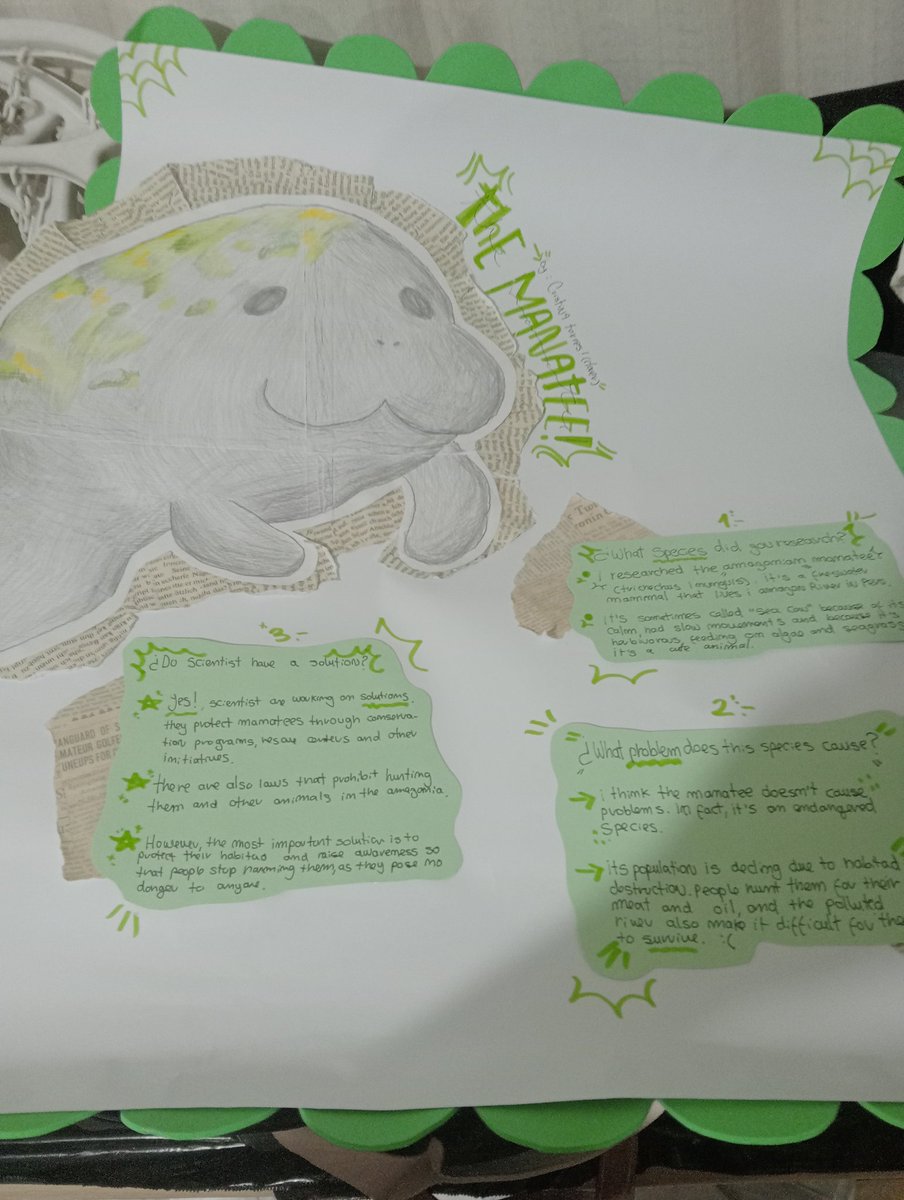 THE MANATEE!
1:-
¿What species did you research?
I researched the amazonian manatee
It's a
mammal that lives i amazonas River in Peru.
It's sometimes called "Sea Cow" because of its
calm, had slow movements and because it's
herbivorous, feeding om algae and seagrass
it's a cute animal.
2:-
¿What problem does this species cause?
i think the mamatee doesn't cause
problems. In fact, it's an endangered
species.
its population is decling due to habitad
destruction. People hunt them for their
meat and oil, and the polluted
river also make it difficult for the
to survive. :(
3:-
¿Do scientist have a solution?
Yes!, scientist are working on solutions.
they protect mamatees through conserva-
tion programs, rescue centers and other
imitiatives.
there are also laws that prohibit hunting
them and other animals im the amazomia.
However, the most important solution is to
protect their habitad and raise awareness so
that people stop harming them, as they pose mo
danger to anyone.